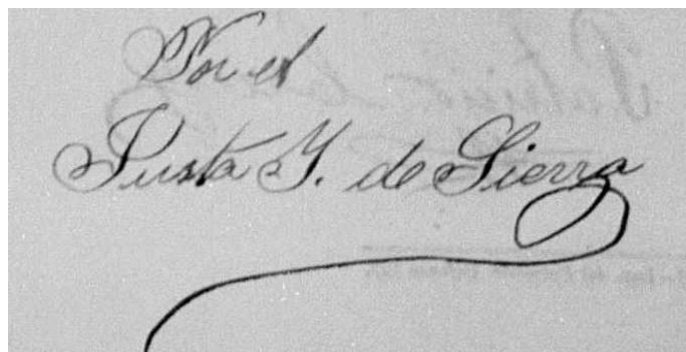 Por el
Justa Y. de Sierra